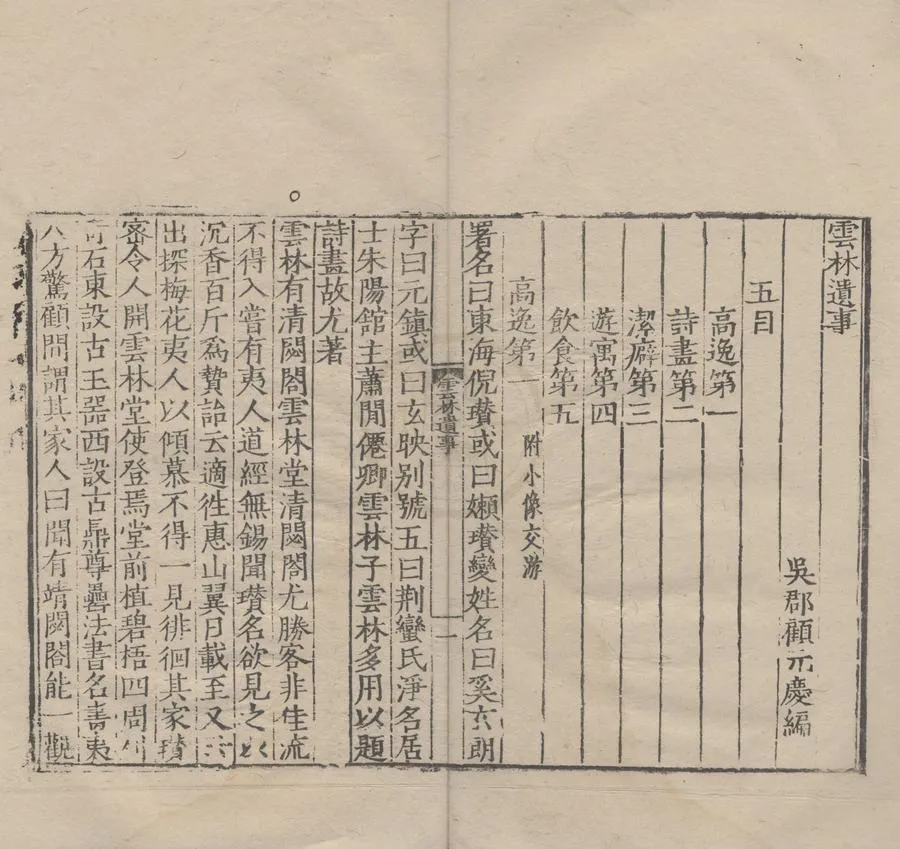 雲林遺事
吳郡顧元慶編
五目
高逸第一
詩畫第二
潔癖第三
遊寓第四
飲食第五
高逸第一 附小像交游
署名曰東海倪瓚或曰嬾瓚變姓名曰奚玄朗
雲林遺事 一
字曰元鎮或曰玄映别號五曰荆蠻氏淨名居
士朱陽舘主蕭閒僊卿雲林子雲林多用以題
詩畫故尤著
雲林有清閟閣雲林堂清閟閣尤勝客非佳流
不得入嘗有夷人道經無錫聞瓚名欲見之以
沉香百斤爲贄詒云適徃惠山翼日載至又云
出探梅花夷人以傾慕不得一見徘徊其家瓚
密令人開雲林堂使登焉堂前植碧梧四周
奇石東設古玉器西設古鼎尊罍法書名畵夷
人方驚顧問謂其家人曰聞有靖閟閣能一觀